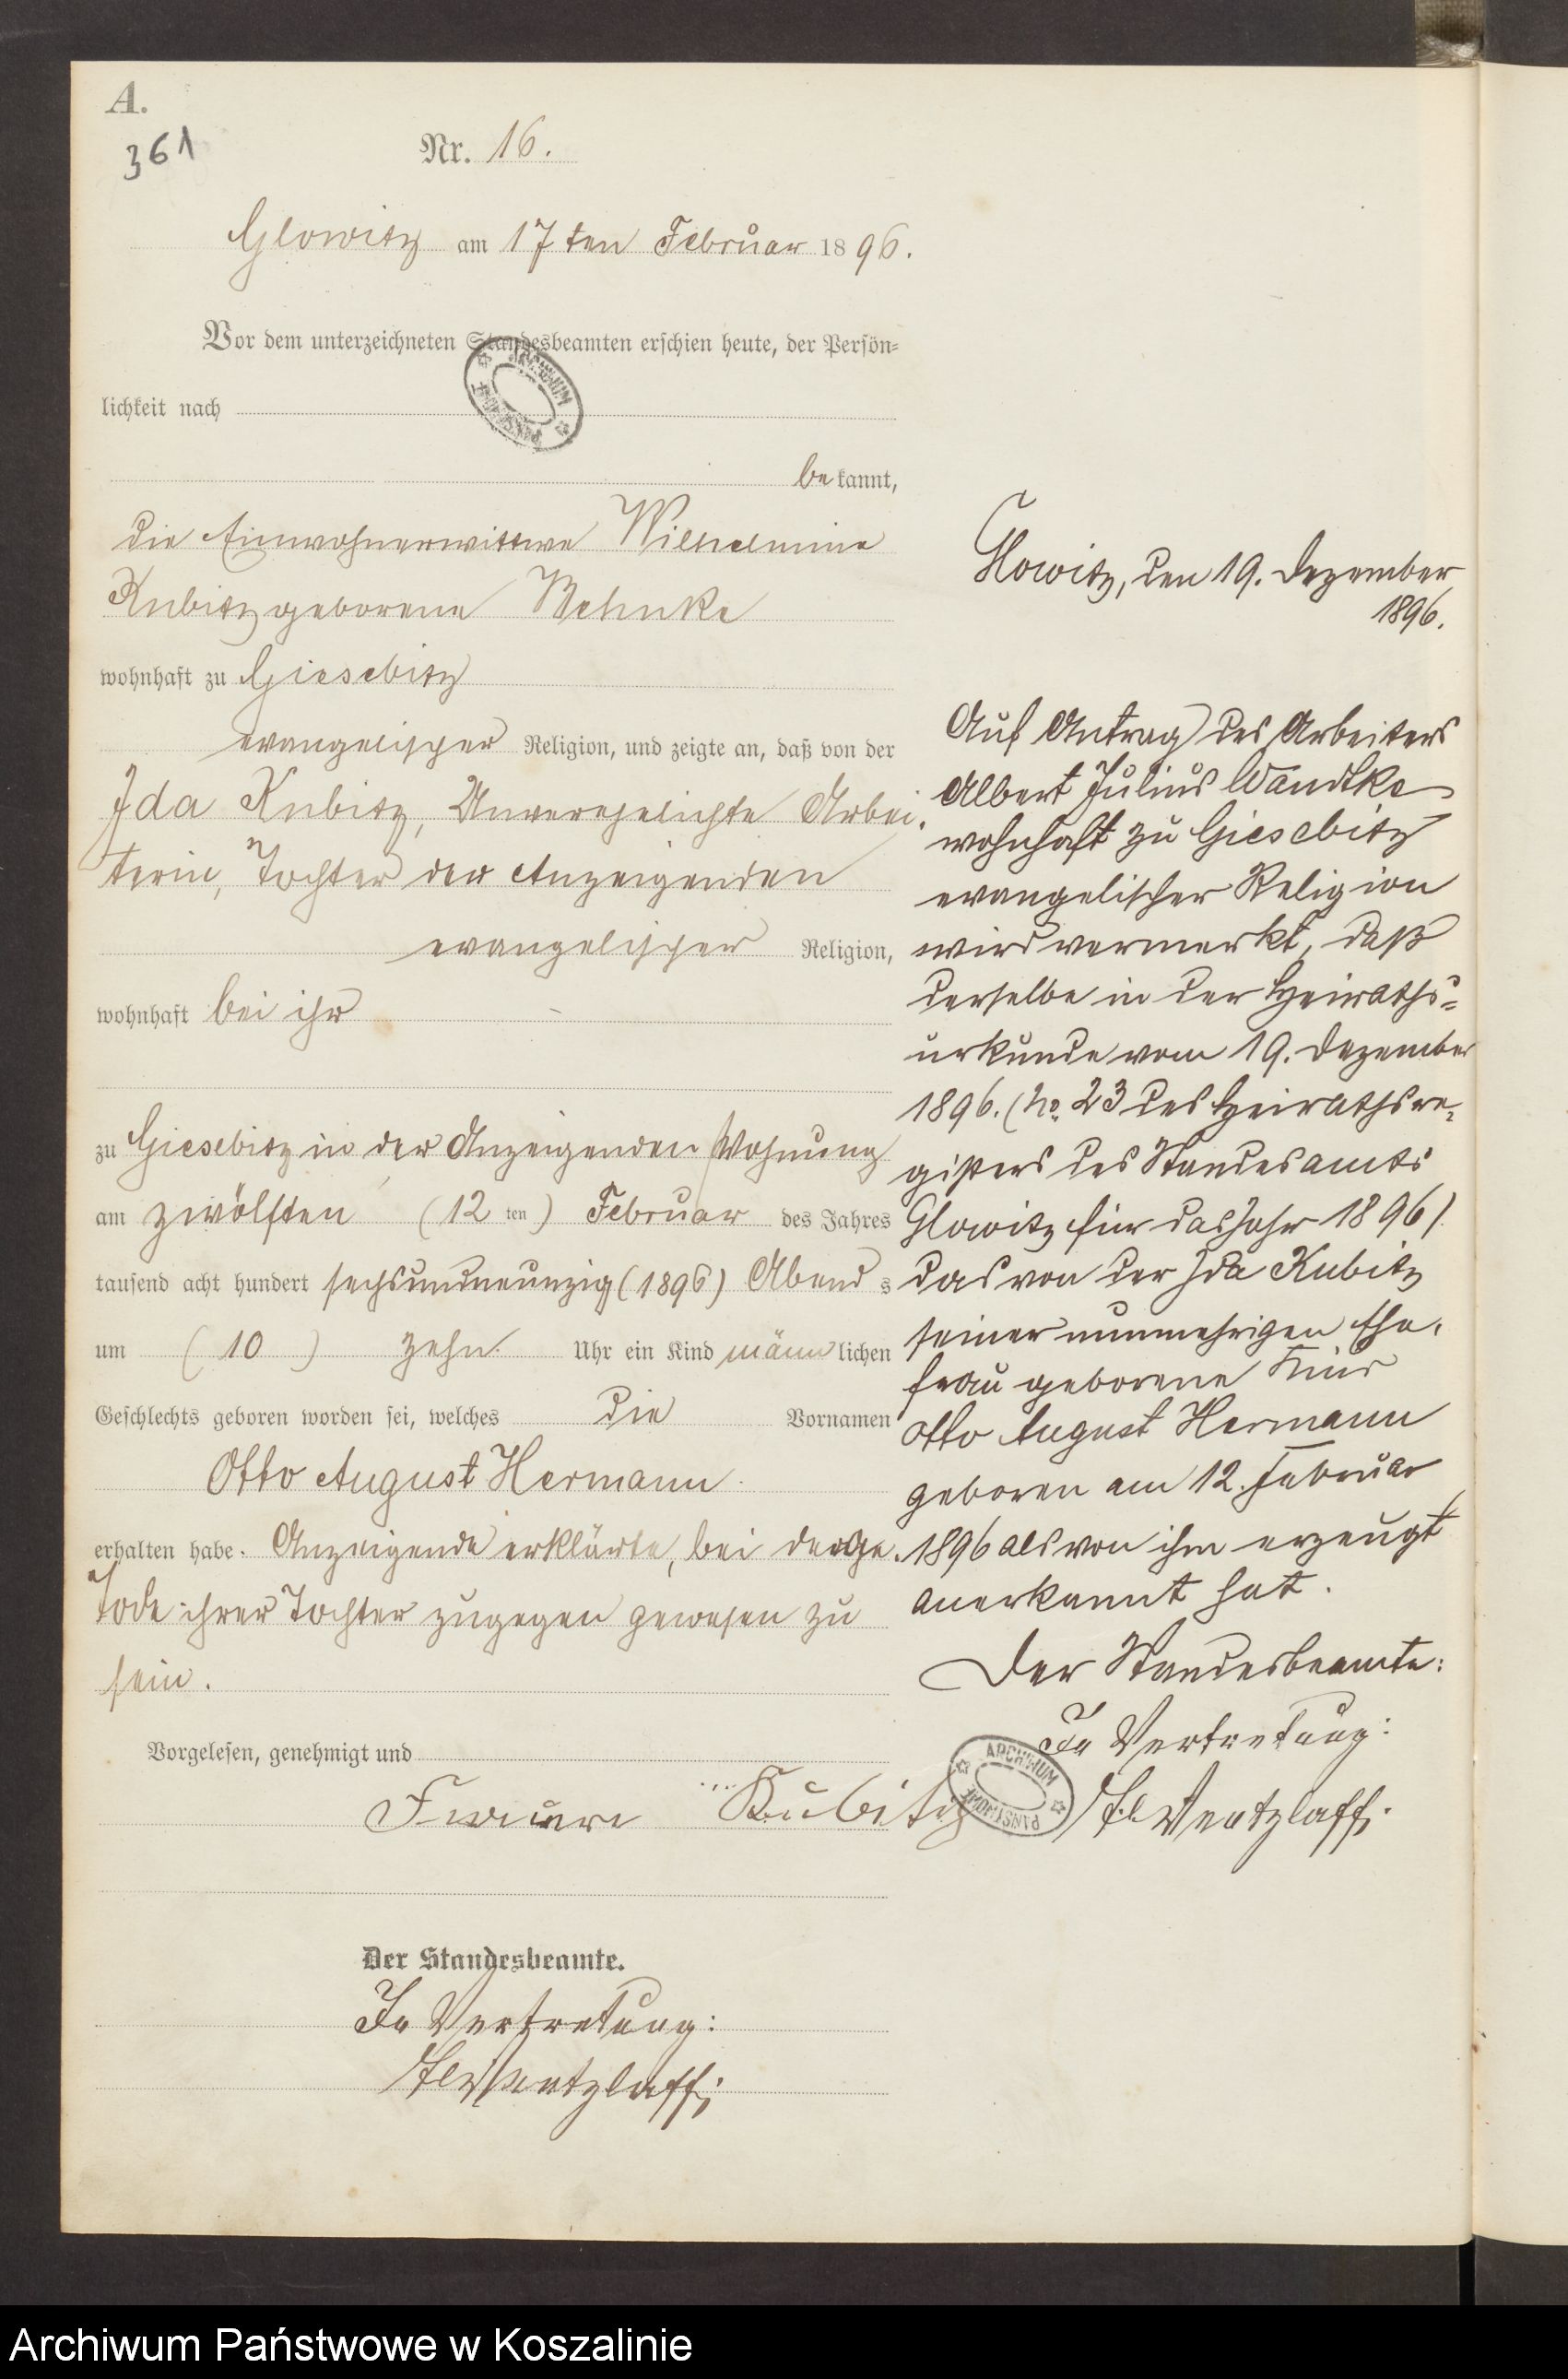 A.
361
Nr. 16.
Glowitz am 17ten Februar 1896.
Vor dem unterzeichneten Standesbeamten erschien heute, der Persön-
lichkeit nach
bekannt,
die Einwohnerwittwe Wilhelmine
Kubitz geborene Mehnke
wohnhaft zu Giesebitz
evangelischer Religion, und zeigte an, daß von der
Ida Kubitz, Unverehelichte Arbei-
terin, Tochter der Anzeigenden
evangelischer Religion,
wohnhaft bei ihr
zu Giesebitz in der Anzeigenden Wohnung
am zwölften (12ten) Februar des Jahres
tausend acht hundert sechsundneunzig (1896) Abends
um (10) zehn Uhr ein Kind männlichen
Geschlechts geboren worden sei, welches die Vornamen
Otto August Hermann
erhalten habe. Anzeigende erklärte, bei der
ihrer Tochter zugegen gewesen zu
sein.
Vorgelesen, genehmigt und
Kubitz
Der Standesbeamte.
In Vertretung:
Wentzlaff.
Glowitz, den 19. Dezember
1896.
Auf Antrag des Arbeiters
Albert Julius Wandtke
wohnhaft zu Giesebitz
evangelischer Religion
wird vermerkt, daß
derselbe in der Heiraths-
urkunde vom 19. Dezember
1896. (No. 23 des Heirathsre-
gisters des Standesamts
Glowitz für das Jahr 1896)
das von der Ida Kubitz
seiner nunmehrigen Ehe-
frau geborene Kind
Otto August Hermann
geboren am 12. Februar
1896 als von ihm erzeugt
anerkannt hat.
Der Standesbeamte:
In Vertretung:
Wentzlaff.
ARCHIWUM PAŃSTWOWE
Archiwum Państwowe w Koszalinie